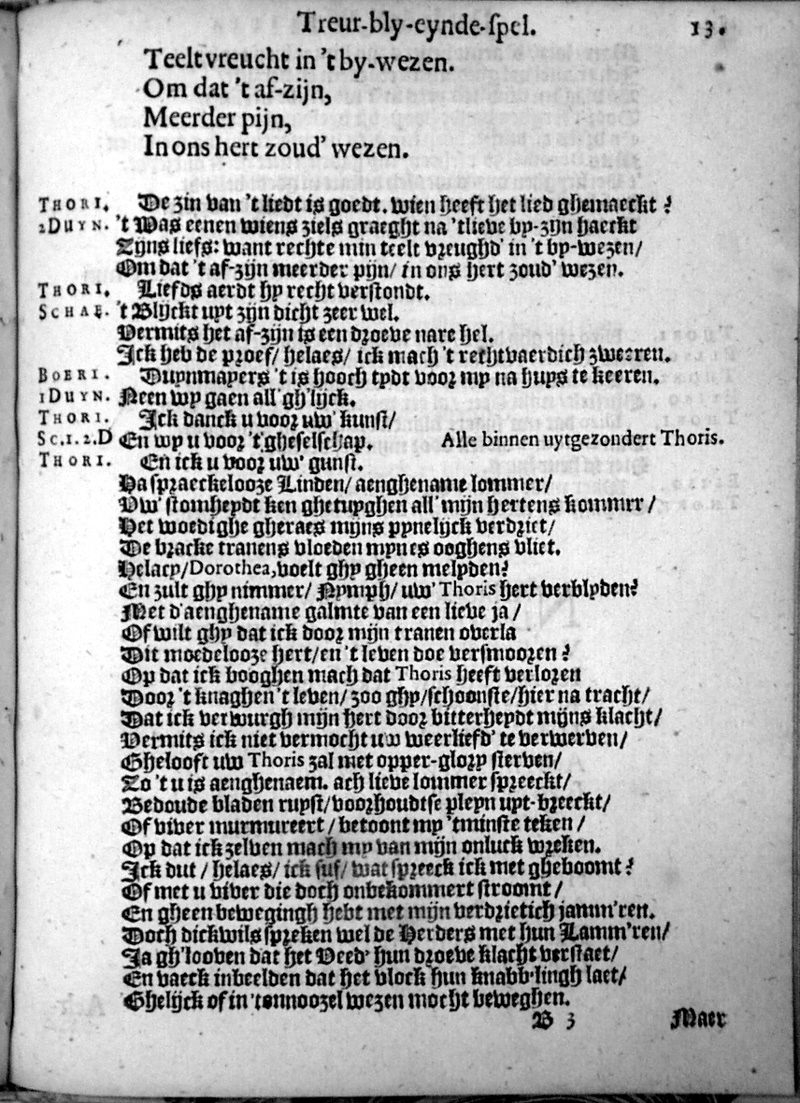 Treur-bly-eynde-spel. 13.
Teelt vreucht in 't by-wezen.
Om dat 't af-zijn,
Meerder pijn,
In ons hert zoud' wezen.
THORI. De zin van 't liedt is goedt. wien heeft het lied ghemaeckt?
2 DUYN. 't Was eenen wiens ziels graeght na 'tlieve by-zijn haeckt
Zijns liefs: want rechte min teelt vreughd' in 't by-wezen/
Om dat 't af-zijn meerder pijn/ in ons hert zoud' wezen.
THORI. Liefds aerdt hy recht verstondt.
SCHAE. 't Blijckt uyt zijn dicht zeer wel.
Vermits het af-zijn is een droeve nare hel.
Ick heb de proef/ helaes/ ick mach 't rechtvaerdich zweeren.
BOERI. Duynmayers 't is hooch tydt voor my na huys te keeren.
1 DUYN. Neen wy gaen all' gh'lijck.
THORI. Ick danck u voor uw' kunst/
SC.1.2.D En wy u voor 't gheselschap. Alle binnen uytgezondert Thoris.
THORI. En ick u voor uw' gunst.
Ha spraeckelooze Linden/ aenghename lommer/
Uw' stomheydt ken ghetuyghen all' mijn hertens kommer/
Het woedighe gheraes mijns pynelijck verdriet/
De bracke tranens vloeden mynes ooghens vliet.
Helacy/Dorothea, voelt ghy gheen melyden?
En zult ghy nimmer/ Nymph/ uw' Thoris hert verblyden?
Met d'aenghename galmte van een lieve ja/
Of wilt ghy dat ick door mijn tranen overla
Dit moedelooze hert/en 't leven doe versmooren?
Op dat ick booghen mach dat Thoris heeft verloren
Door 't knaghen 't leven/ zoo ghy/schoonste/hier na tracht/
Dat ick verwurgh mijn hert door bitterheydt mijns klacht/
Vermits ick niet vermocht uw weerliefd' te verwerven/
Ghelooft uw Thoris zal met opper-glory sterven/
Zo 't u is aenghenaem. ach lieve lommer spreeckt/
Bedoude bladen ruyst/voorhoudtse pleyn uyt-breeckt/
Of viver murmureert/ betoont my 'tminste teken/
Op dat ick zelven mach my van mijn onluck wreken.
Ick dut/ helaes/ ick suf/ wat spreeck ick met gheboomt?
Of met u viver die doch onbekommert stroomt/
En gheen bewegingh hebt met mijn verdrietich jamm'ren.
Doch dickwils spreken wel de Herders met hun Lamm'ren/
Ja gh'looven dat het Veed' hun droeve klacht verstaet/
En vaeck inbeelden dat het vlock hun knabb'lingh laet/
Ghelijck of in 't onnoozel wezen mocht beweghen.
B 3 Maer